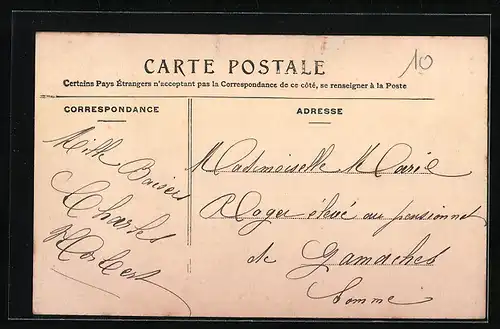 CARTE POSTALE
10
Certains Pays Étrangers n'acceptant pas la Correspondance de ce côté, se renseigner à la Poste
CORRESPONDANCE
Mille Baisers
Charles
ADRESSE
Mademoiselle Marie
Roger élevé au pensionnat
de Gamaches
Somme